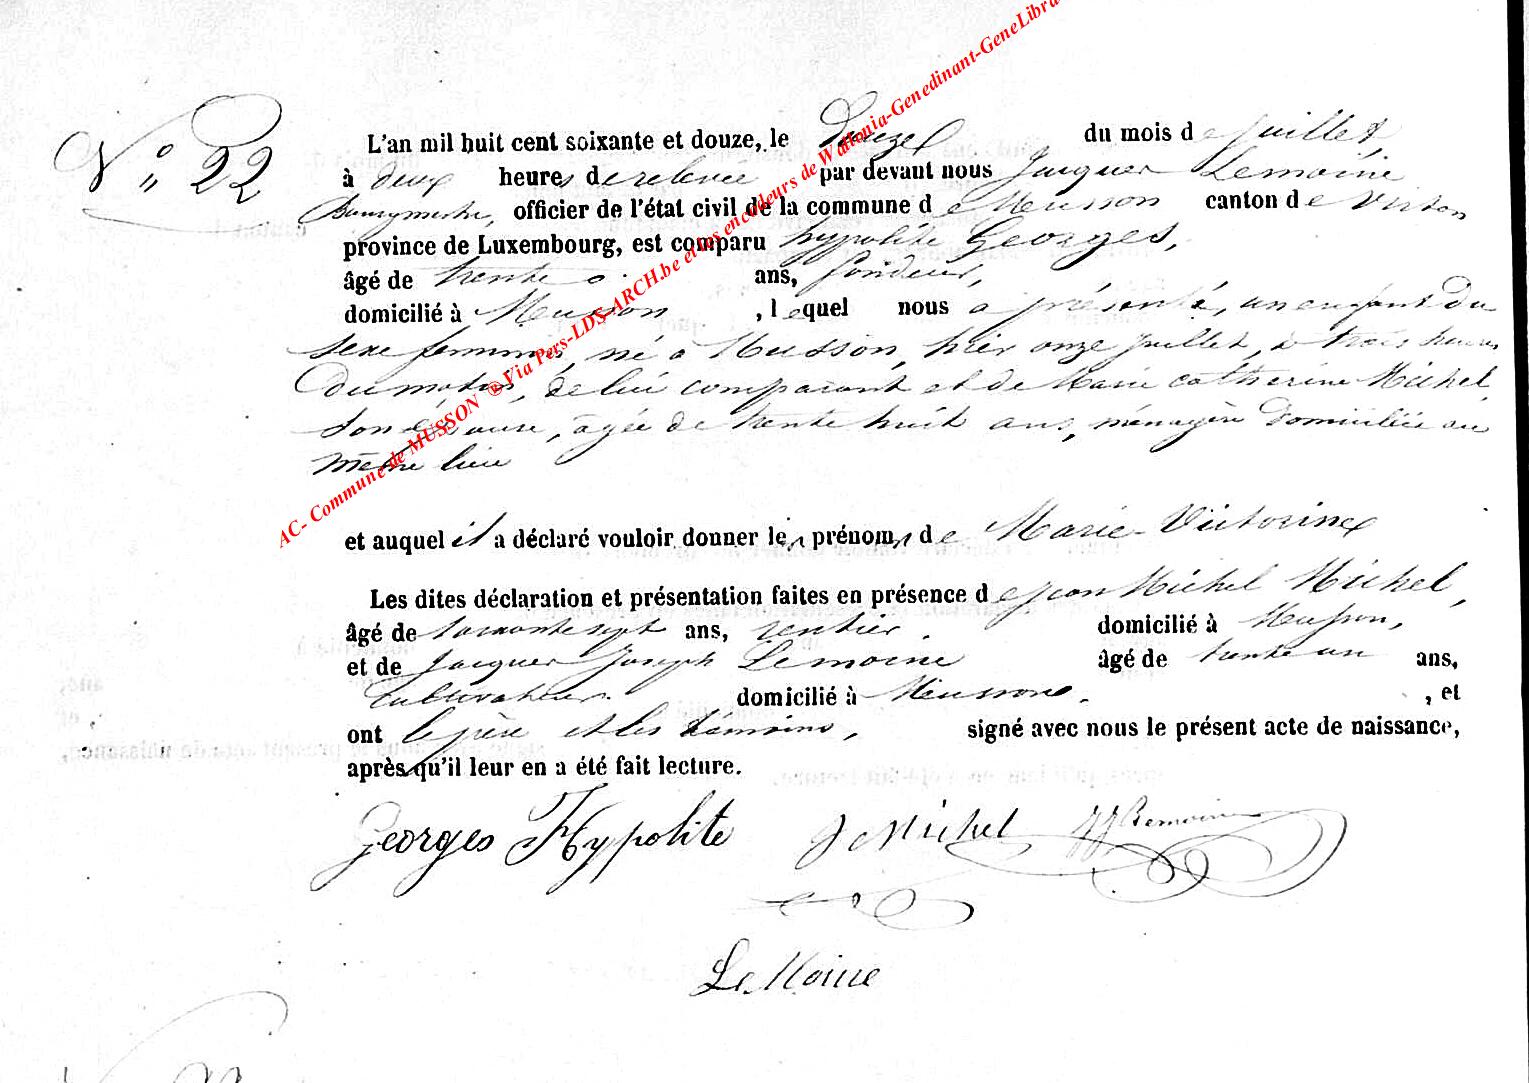 N° 22
L'an mil huit cent soixante et douze, le Douze du mois de juillet,
à deux heures de relevée par devant nous Jacques Lemoine
Bourgmestre, officier de l'état civil de la commune de Musson canton de Virton
province de Luxembourg, est comparu hypolite Georges,
âgé de trente ans, fondeur,
domicilié à Musson, lequel nous a présenté, un enfant du
sexe féminin, né à Musson, hier onze juillet, à trois heures
du matin, de lui comparant et de Marie Catherine Michel,
son épouse, âgée de trente huit ans, ménagère domiciliée au
même lieu
et auquel il a déclaré vouloir donner les prénoms de Marie-Victorine
Les dites déclaration et présentation faites en présence de jean Michel Michel,
âgé de soixante sept ans, rentier. domicilié à Musson,
et de Jacques Joseph Lemoine âgé de trente un ans,
cultivateur. domicilié à Musson. , et
ont le père et les témoins, signé avec nous le présent acte de naissance,
après qu'il leur en a été fait lecture.
Georges Hypolite J Michel JJ Lemoine
Le Moine
AC- Commune de MUSSON ® Via Pers-LDS-ARCH.be et les encodeurs de Wallonia-Genedinant-GeneLibra